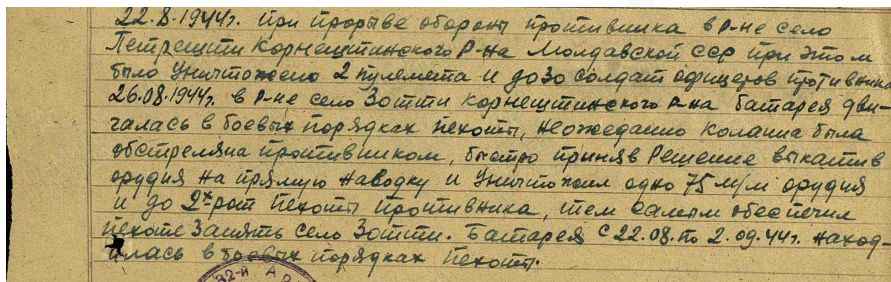 22.8.1944г. при прорыве обороны противника в р-не село
Петрешти Корнештинского р-на Молдавской сср при этом
было уничтожено 2 пулемета и до 30 солдат офицеров противника
26.08.1944г. в р-не село Зотти Корнештинского р-на батарея дви-
галась в боевых порядках пехоты, неожеданно коланна была
обстреляна противником, быстро приняв решение выкатив
орудия на прямую наводку и уничтожил одно 75 м/м орудия
и до 2х рот пехоты противника, тем самым обеспечил
пехоте занять село Зотти. Батарея с 22.08. по 2.09.44г. наход-
илась в боевых порядках пехоты.
32-й